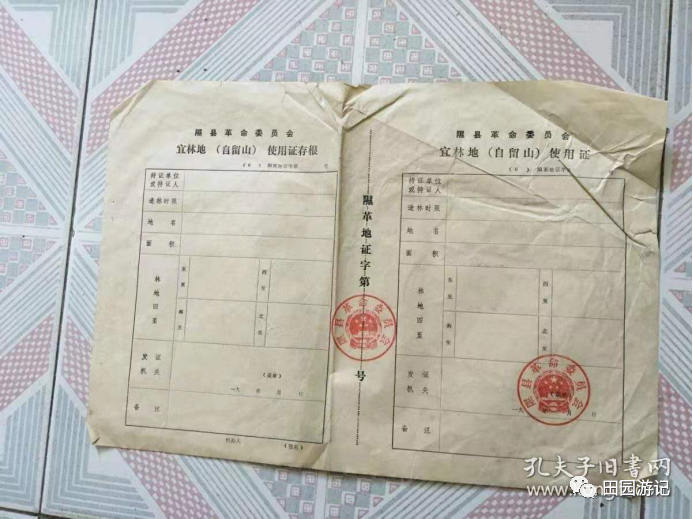 隰县革命委员会
宜林地（自留山）使用证存根
持证单位
或持证人
造林时限
地名
面积
林地四至
东至
西至
南至
北至
发证
机关
（盖章）
一九 年 月 日
备注
机办人
（签名）
隰革地证字第 号
隰县革命委员会
隰县革命委员会
宜林地（自留山）使用证
持证单位
或持证人
造林时限
地名
面积
林地四至
东至
西至
南至
北至
发证
机关
一九 年 月 日
备注
隰县革命委员会
孔夫子旧书网
田园游记